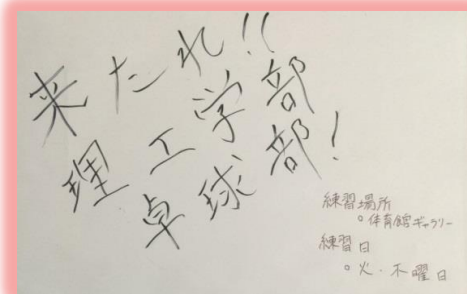 来たれ!!
理工学部
卓球部!
練習場所
。体育館ギャラリー
練習日
。火・木曜日